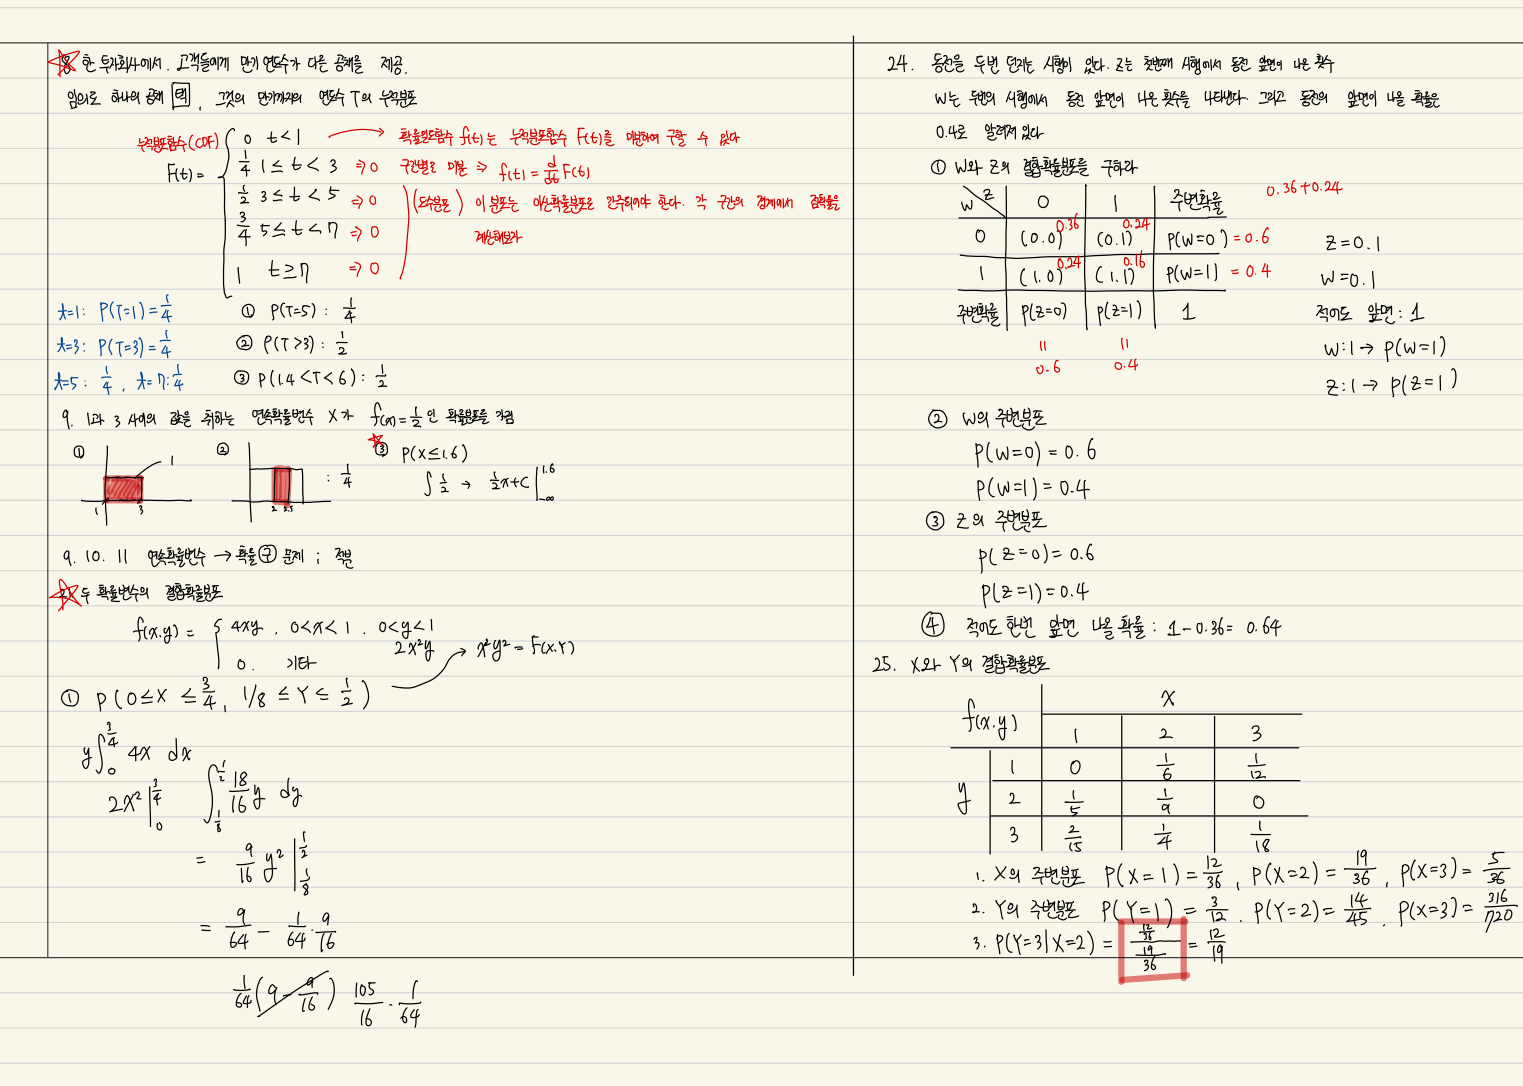 8 한 투자회사에서. 고객들에게 만기 연도수가 다른 공채를 제공.
임의로 하나의 공채 택, 그것의 만기까지의 연도수 T의 누적분포
누적분포함수(CDF)
F(t) =
0 t<1 → 확률밀도함수 f(t)는 누적분포함수 F(t)를 미분하여 구할 수 있다
1/4 1≤t<3 ⇒0 구간별로 미분 ⇒ f(t) = d/dt F(t)
1/2 3≤t<5 ⇒0 (도수분포) 이 분포는 이산확률분포로 간주되어야 한다. 각 구간의 경계에서 점확률을
3/4 5≤t<7 ⇒0 계산해보자
1 t≥7 ⇒0
t=1: P(T=1)=1/4 ① P(T=5): 1/4
t=3: P(T=3)=1/4 ② P(T>3): 1/2
t=5: 1/4, t=7: 1/4 ③ P(1.4<T<6): 1/2
9. 1과 3 사이의 값을 취하는 연속확률변수 X가 f(x)=1/2인 확률분포를 가짐
① 1 ② : 1/4 ③ P(X≤1.6)
1 3 2 2.5 ∫ 1/2 → 1/2x+C |1.6 -∞
9. 10. 11 연속확률변수 → 확률 구 문제 ; 적분
21 두 확률변수의 결합확률분포
f(x.y) = 4xy . 0<x<1 . 0<y<1
0. 기타 2x²y → x²y² = F(x.Y)
① P(0≤X≤3/4, 1/8≤Y≤1/2)
y∫ 3/4 0 4x dx
2x² | 3/4 0 ∫ 1/2 1/8 18/16 y dy
= 9/16 y² | 1/2 1/8
= 9/64 - 1/64 · 9/16
1/64 (9 - 9/16) 105/16 · 1/64
24. 동전을 두번 던지는 시행이 있다. Z는 첫번째 시행에서 동전 앞면이 나온 횟수
W는 두번의 시행에서 동전 앞면이 나온 횟수를 나타낸다. 그리고 동전의 앞면이 나올 확률은
0.4로 알려져 있다
① W와 Z의 결합확률분포를 구하라
0.36+0.24
W Z 0 1 주변확률
0 (0.0) 0.36 (0.1) 0.24 P(W=0) = 0.6
1 (1.0) 0.24 (1.1) 0.16 P(W=1) = 0.4
주변확률 P(Z=0) P(Z=1) 1
= 0.6 = 0.4
Z=0.1
W=0.1
적어도 앞면: 1
W:1 → P(W=1)
Z:1 → P(Z=1)
② W의 주변분포
P(W=0) = 0.6
P(W=1) = 0.4
③ Z의 주변분포
P(Z=0)=0.6
P(Z=1)=0.4
④ 적어도 한번 앞면 나올 확률: 1-0.36= 0.64
25. X와 Y의 결합확률분포
f(x.y) X
1 2 3
y 1 0 1/6 1/12
2 1/5 1/9 0
3 2/15 1/4 1/18
1. X의 주변분포 P(X=1)=12/36, P(X=2)=19/36, P(X=3)=5/36
2. Y의 주변분포 P(Y=1)=3/12. P(Y=2)=14/45. P(X=3)=316/720
3. P(Y=3|X=2) = 12/36 / 19/36 = 12/19